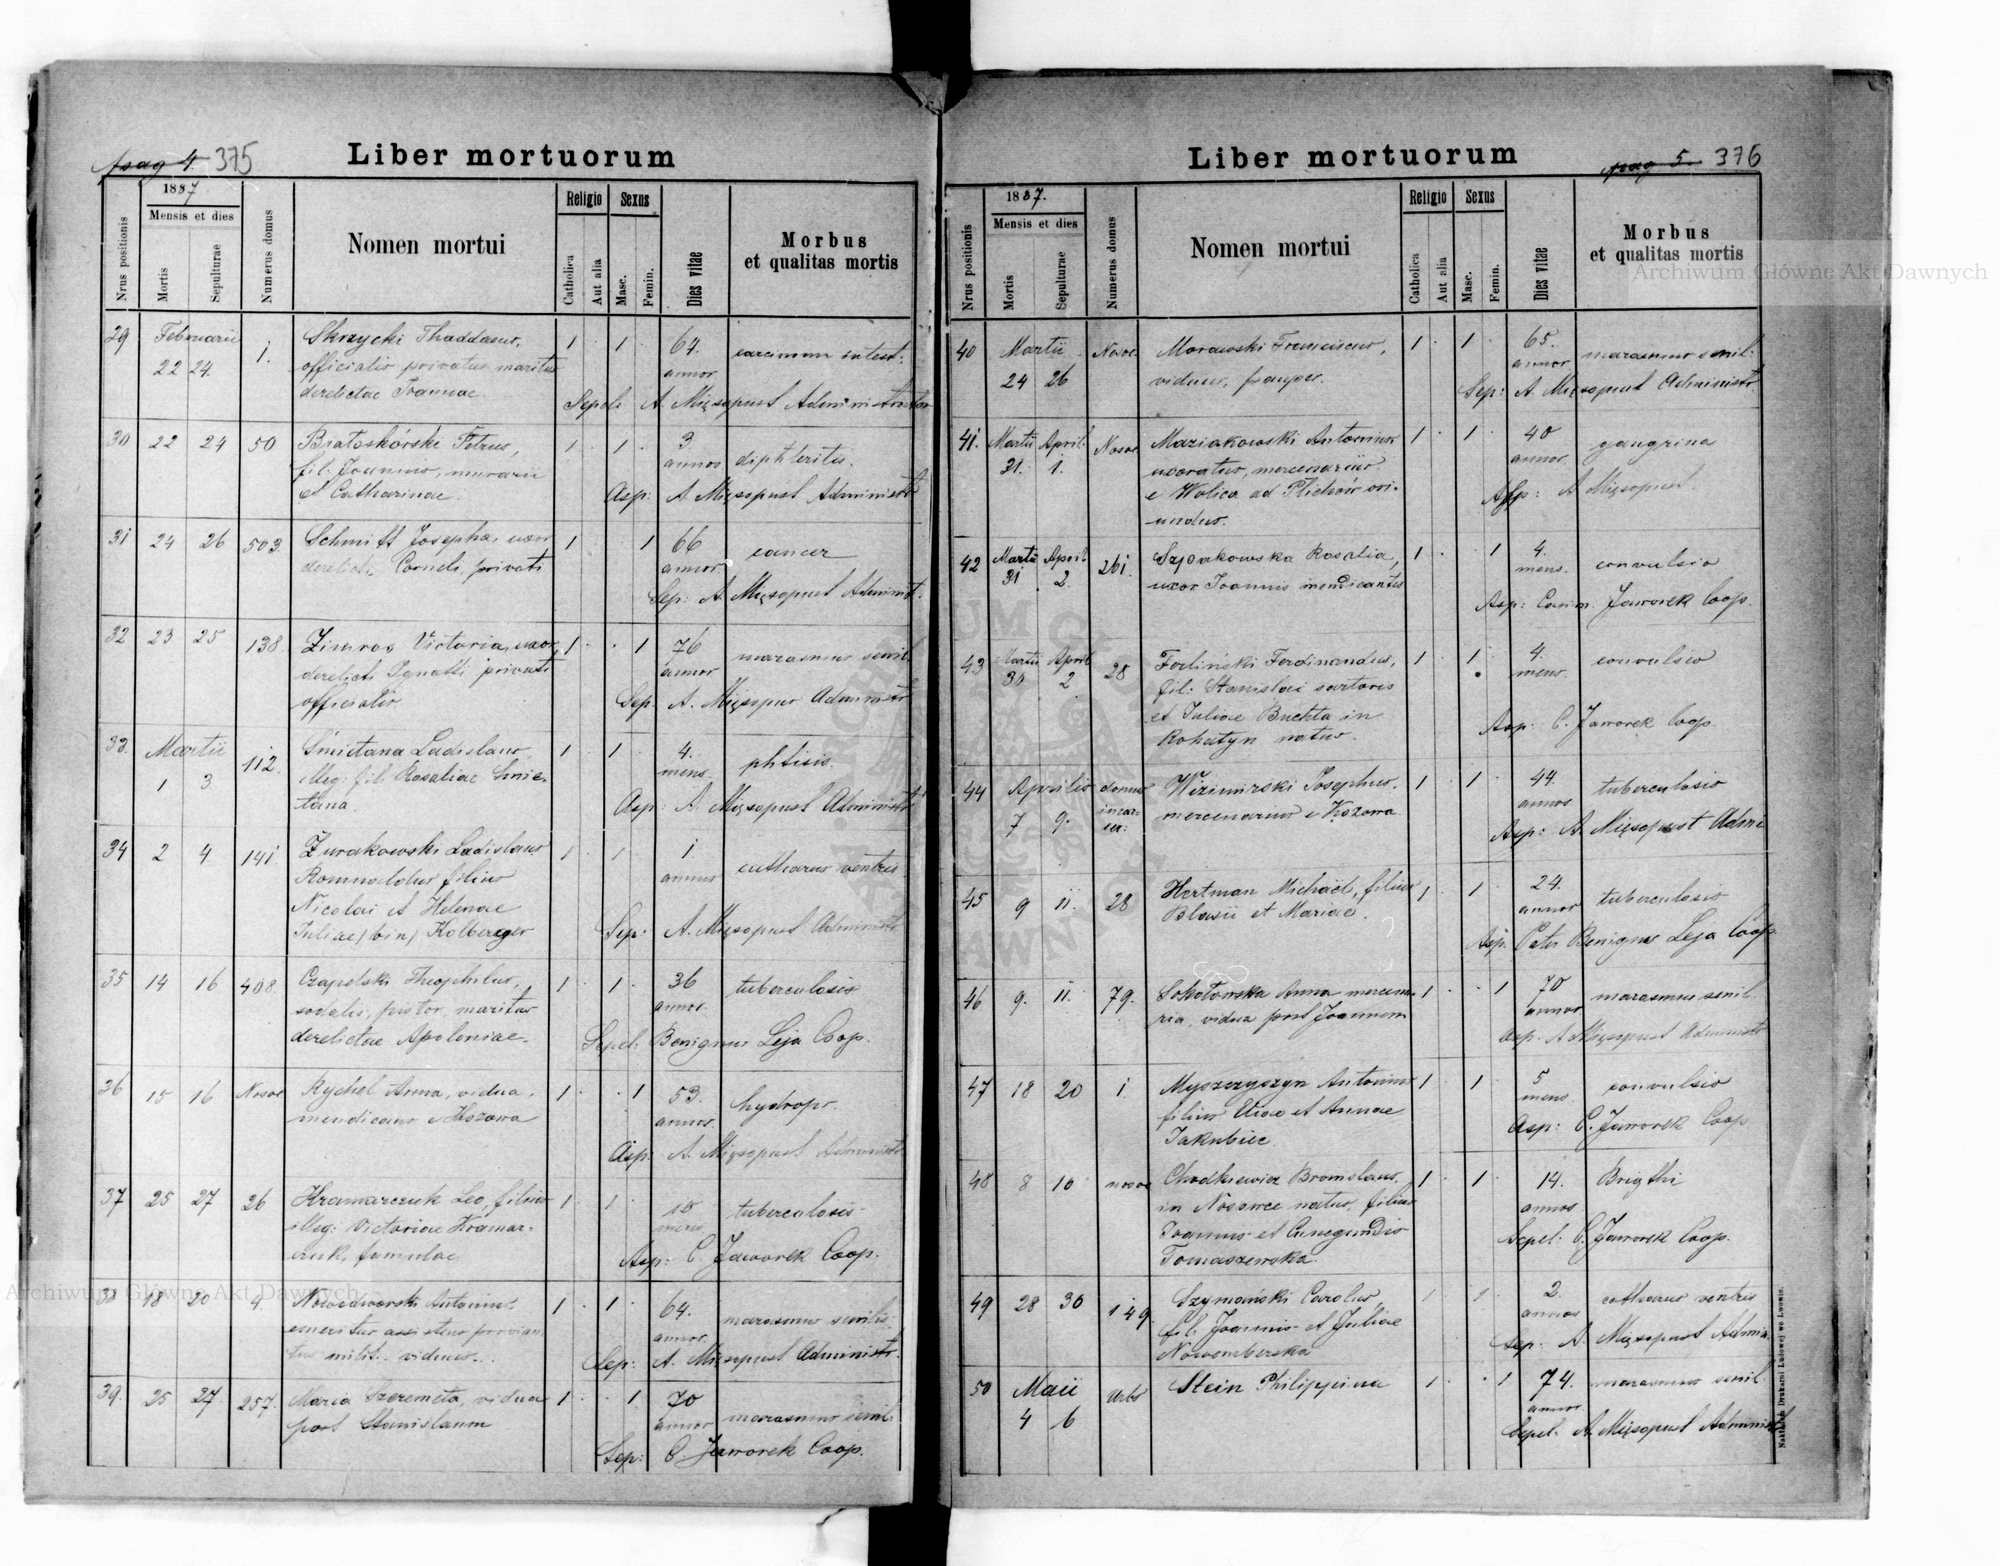 pag 4. 375
Liber mortuorum
1887
Mensis et dies
Nrus positionis
Mortis
Sepulturae
Numerus domus
Nomen mortui
Religio
Catholica
Aut alia
Sexus
Masc.
Femin.
Dies vitae
Morbus
et qualitas mortis
29 Februarii 1. Skrzycki Thaddaeus, 1 1 64.
22 24. officialis privatus maritus annor.
derelictae Joannae.
Sepel: A. Mięsopust Administrator
30 22 24 50 Bratoskórski Petrus, 1 1 3
fil: Joannis, murarii annos diphteritis.
et Catharinae.
Asp: A. Mięsopust Administr
31 24 26 503. Schmitt Josepha, uxor 1 1 66 cancer
derelicti Corneli, privati annor
Sep: A. Mięsopust Administ.
32 23 25 138. Victoria, uxor 1 1 76 marasmus senil.
derelicti Ignatii privati annor
officialis
Sep: A. Mięsopus Administr
33. Martii 112. Śmietana Ladislaus, 1 1 4. phtisis.
1 3 illeg: fil. Rosaliae Śmie- mens.
tana.
Asp: A. Mięsopust Administ
34 2 4 141 Żurakowski Ladislaus 1 1 1 catharus ventris
Romualdus filius annus
Nicolai et Helenae
Juliae /bin/ Kolberger
Sep: A. Mięsopust Administ
35 14 16 408. Czapelski Theophilus, 1 1 36 tuberculosis
sodalis pistor, maritus annor.
derelictae Apoloniae.
Sepel: Benignus Leja Coop.
36 15 16 Nosov Rychel Anna, vidua, 1 1 53. hydrops.
mendicans e Kozowa annor.
Asp: A. Mięsopust Administr
37 25 27 26 Kramarczuk Leo, filius 1 1 10 tuberculosis
illeg: Victoriae Kramar- mens
czuk, famulae
Asp: C. Jaworek Coop.
38 18 20 4. Nowodworski Antonius 1 1 64. marasmus senilis.
emeritus assistens provian annor.
milit. viduus.
Sep: A. Mięsopust Administr.
39. 25 27 257. Maria Szeremeta, vidua 1 1 70 marasmus senil.
post Stanislaum annor
Sep: C. Jaworek Coop.
pag 5. 376
Liber mortuorum
1887.
Mensis et dies
Nrus positionis
Mortis
Sepulturae
Numerus domus
Nomen mortui
Religio
Catholica
Aut alia
Sexus
Masc.
Femin.
Dies vitae
Morbus
et qualitas mortis
40 Martii Nosov. Morawski Franciscus, 1 1 65. marasmus senil.
24 26 viduus, pauper. annor
Sep: A. Mięsopust Administr
41. Martii April. Nosov Maziakowski Antonius 1 1 40 gangrina
31. 1. uxoratus, mercenarius annor.
e Wolica ad ori-
undus.
Asp: A Mięsopust.
42 Martii April 261. Szpakowska Rosalia, 1 1 4. convulsio
31 2. uxor Joannis mendicantis mens.
Asp: Casim. Jaworek Coop.
43 Martii April 28 Ferdinandus, 1 1 4. convulsio
30 2 fil: Stanislai sartoris mens.
et Juliae Buchta in
Rohatyn natus.
Asp: C. Jaworek Coop.
44 Aprilis domus Wizimirski Josephus, 1 1 44 tuberculosis
7 9. mercenarius e Kozowa annos
Asp: A. Mięsopust Admi
45 9 11. 28 Hertman Michaël, filius 1 1 24. tuberculosis
Blasii et Mariae. annor
Asp. Pater Benignus Leja Coop
46 9. 11. 79. Sokołowska Anna mercena- 1 1 70 marasmus senil
ria, vidua post Joannem annor
Asp. A Mięsopust Administr
47 18 20 1. Myszczyszyn Antonius 1 1 5 convulsio
filius Eliae et Annae mens.
Jakubiec
Asp: C. Jaworek Coop
48 8 10 nosov Chodkiewicz Bronislaus, 1 1 14. Brigthi
in Nosowce natus, filius annos
Joannis et Cunegundis
Tomaszewska.
Sepel: C. Jaworek Coop.
49 28 30 149. Szymański Carolus, 1 1 2. catharus ventris
fil: Joannis et Juliae annos
Nowomberska
Sep: A. Mięsopust Admin.
50 Maii Urbs Stein Philippina 1 1 74. marasmus senil
4 6 annor
Sepel: A. Mięsopust Administ
Nakładem Drukarni Ludowej we Lwowie.
Archiwum Główne Akt Dawnych
Archiwum Główne Akt Dawnych